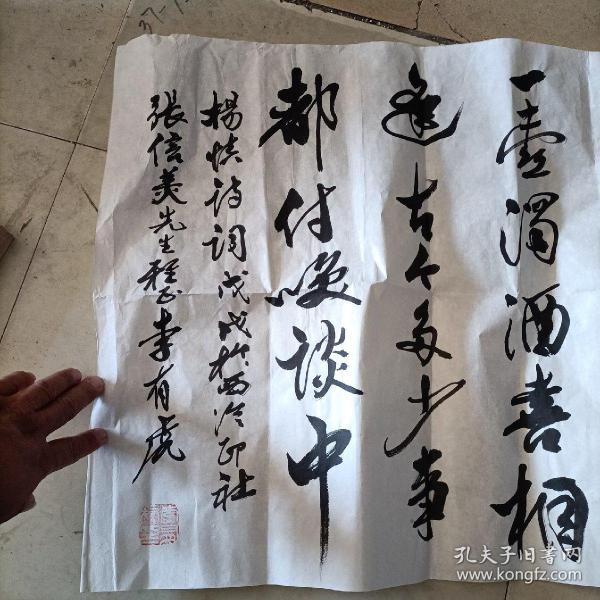 一壶濁酒喜相
逢古今多少事
都付笑談中
楊慎詩词戊戌於西泠印社
張信美先生程正李有虎
孔夫子旧书网
www.kongfz.com